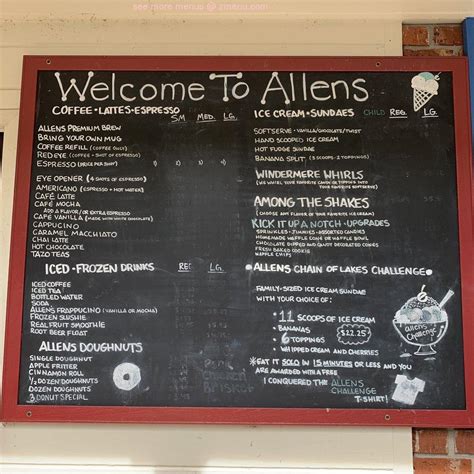 see more menus @ zmenu.com
Welcome To Allens
COFFEE • LATTES • ESPRESSO
SM. MED. LG.
ALLENS PREMIUM BREW
BRING YOUR OWN MUG
COFFEE REFILL (COFFEE ONLY)
RED EYE (COFFEE + SHOT OF ESPRESSO)
ESPRESSO (PRICE PER SHOT) 1) 2) 3)
EYE OPENER (4 SHOTS OF ESPRESSO)
AMERICANO (ESPRESSO + HOT WATER)
CAFÉ LATTE
CAFÉ MOCHA
ADD A FLAVOR/OR EXTRA ESPRESSO
CAFÉ VANILLA (MADE WITH WHITE CHOCOLATE)
CAPPUCINO
CARAMEL MACCHIATO
CHAI LATTE
HOT CHOCOLATE
TAZO TEAS
ICED • FROZEN DRINKS
REG. LG.
ICED COFFEE
ICED TEA
BOTTLED WATER
SODA
ALLENS FRAPPUCINO (VANILLA OR MOCHA)
FROZEN SLUSHIE
REAL FRUIT SMOOTHIE
ROOT BEER FLOAT
ALLENS DOUGHNUTS
SINGLE DOUGHNUT
APPLE FRITTER
CINNAMON ROLL
1/2 DOZEN DOUGHNUTS
DOZEN DOUGHNUTS
3 DONUT SPECIAL
ICE CREAM • SUNDAES CHILD REG. LG.
SOFTSERVE - VANILLA/CHOCOLATE/TWIST
HAND SCOOPED ICE CREAM
HOT FUDGE SUNDAE
BANANA SPLIT (3 SCOOPS - 2 TOPPINGS)
WINDERMERE WHIRLS
(WE WHIRL YOUR FAVORITE CANDY OR TOPPING INTO
YOUR FAVORITE SOFTSERVE)
AMONG THE SHAKES
(CHOOSE ANY FLAVOR OF YOUR FAVORITE ICE CREAM)
KICK IT UP A NOTCH - UPGRADES
SPRINKLES - JIMMIES - ASSORTED CANDIES
HOMEMADE WAFFLE CONE OR WAFFLE BOWL
CHOCOLATE DIPPED AND CANDY DECORATED CONES
FRESH BAKED COOKIE
WAFFLE CHIPS
• ALLENS CHAIN OF LAKES CHALLENGE •
FAMILY-SIZED ICE CREAM SUNDAE
WITH YOUR CHOICE OF:
• 11 SCOOPS OF ICE CREAM
• BANANAS
• 6 TOPPINGS
$22.25
• WHIPPED CREAM AND CHERRIES
Allens Challenge
*EAT IT SOLO IN 15 MINUTES OR LESS AND YOU
ARE AWARDED WITH A FREE
I CONQUERED THE ALLENS
CHALLENGE
T-SHIRT!